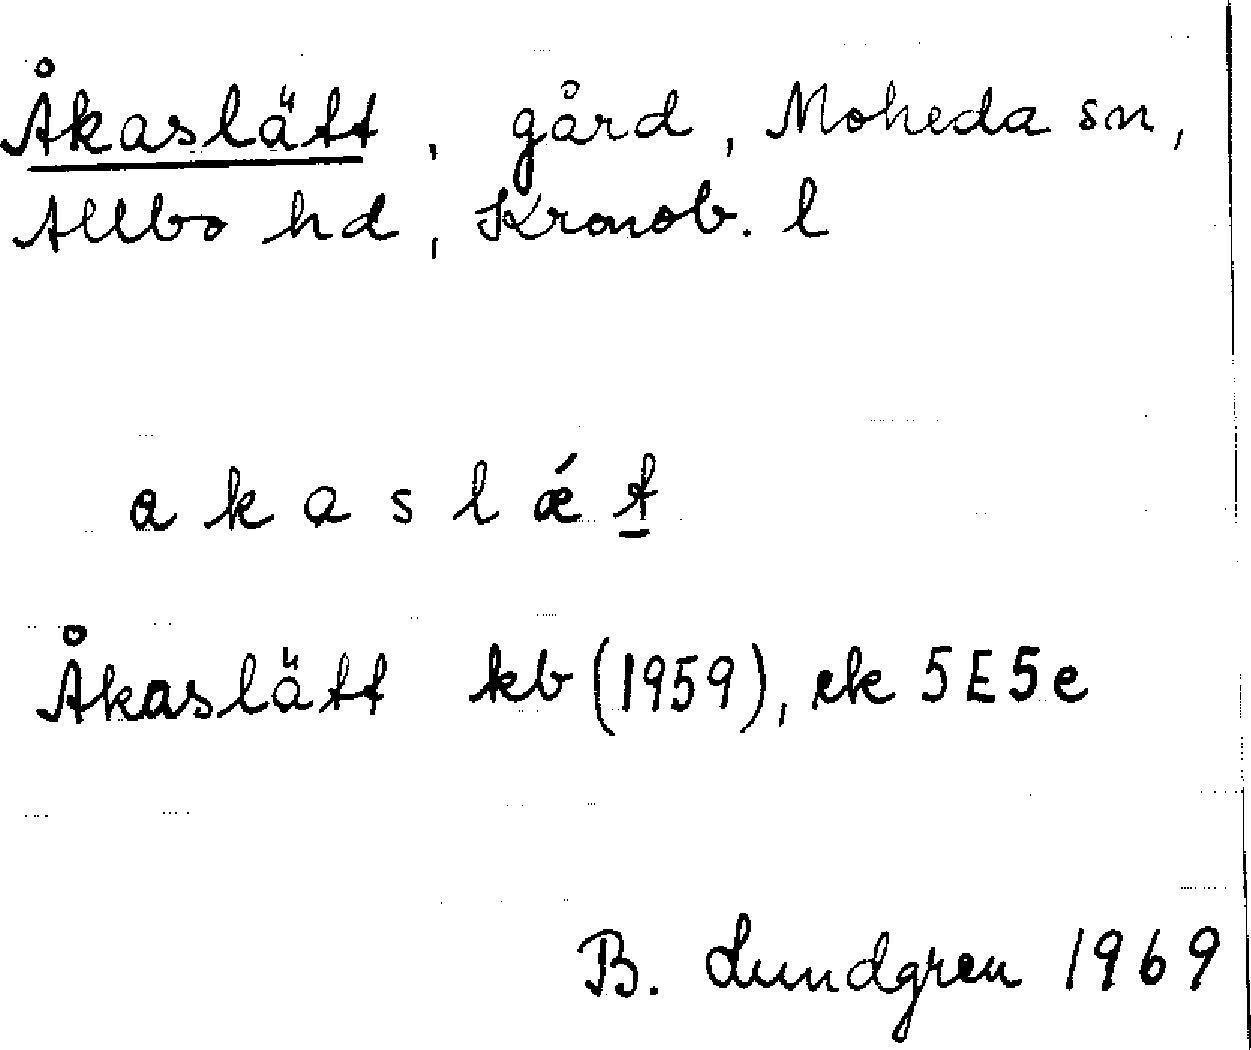 Åkaslätt, gård, Moheda sn,
Allbo hd, Kronob. l
a k a s l ǽ t̲
Åkaslätt kb (1959), ek 5E5e
B. Lundgren 1969